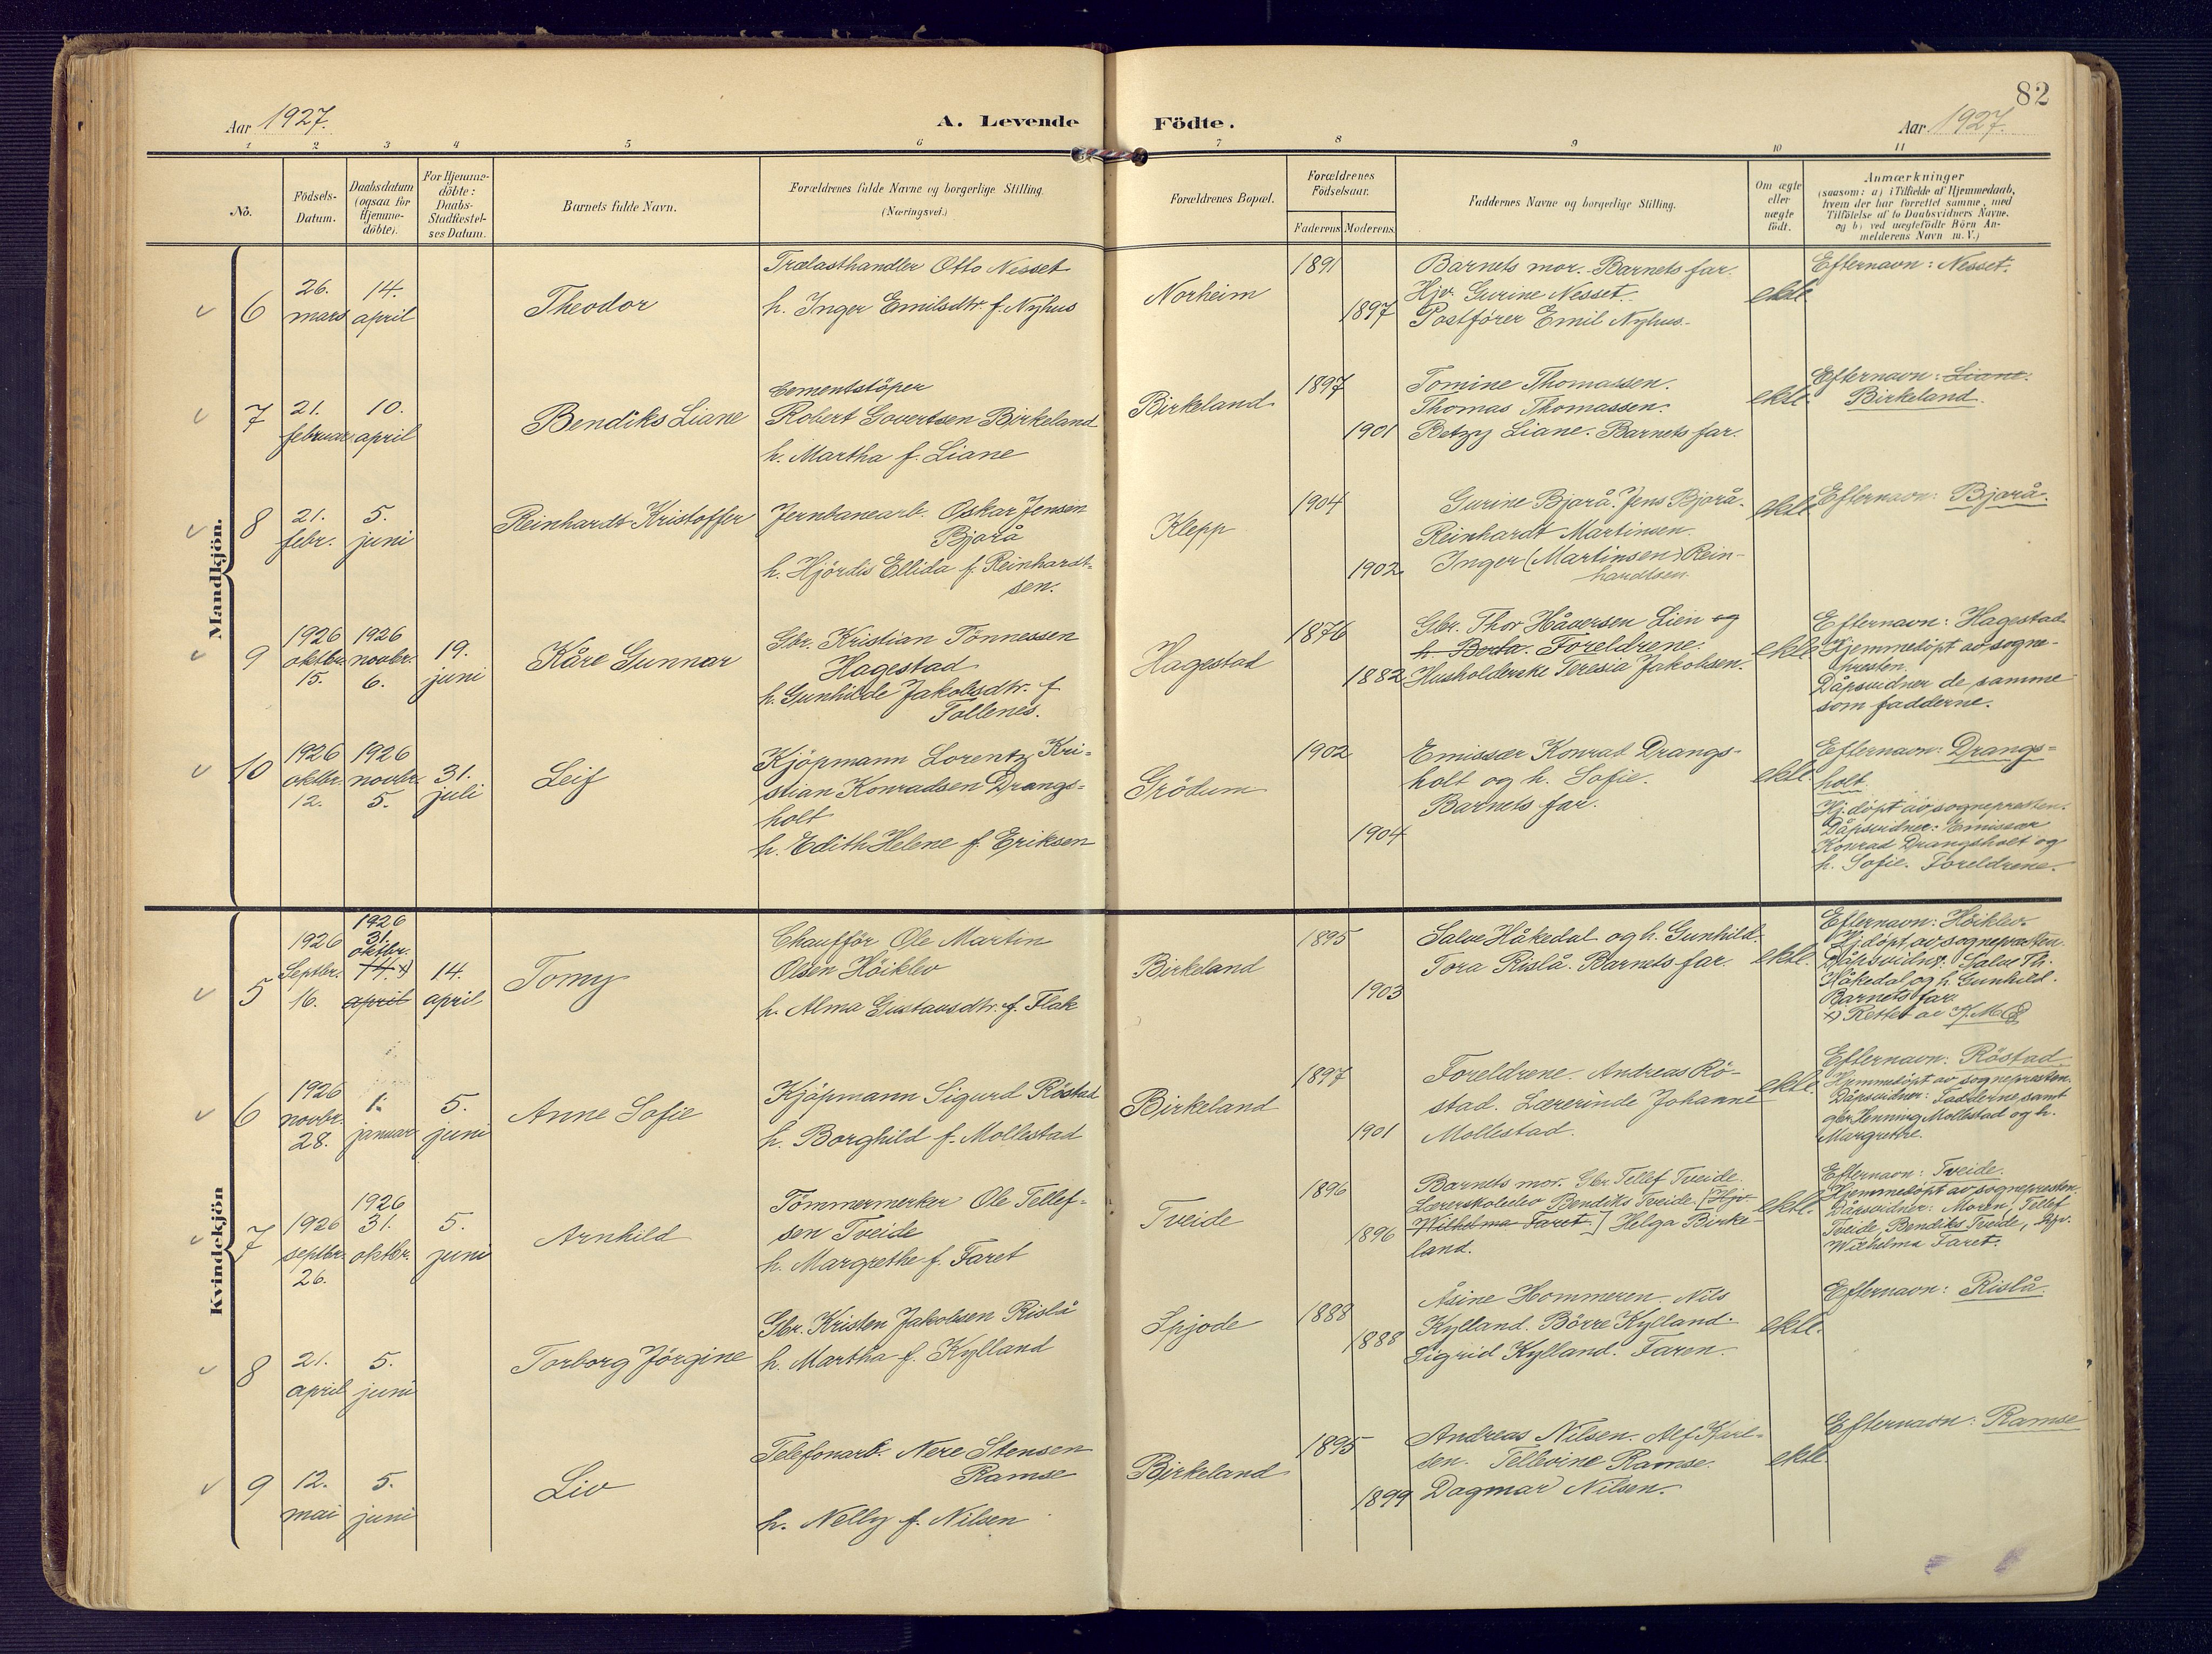 82
Aar 1927.
A. Levende Födte.
Aar 1927.
1 2 3 4 5 6 7 8 9 10 11
No.
Födsels-
Datum.
Daabsdatum
(ogsaa for
Hjemme-
döbte).
For Hjemme-
döbte:
Daabs-
Stadfestel-
ses Datum.
Barnets fulde Navn.
Forældrenes fulde Navne og borgerlige Stilling.
(Næringsvei.)
Forældrenes Bopæl.
Forældrenes
Födselsaar.
Faderens Moderens
Faddernes Navne og borgerlige Stilling.
Om ægte
eller
uægte
födt.
Anmærkninger
(saasom: a) i Tilfælde af Hjemmedaab,
hvem der har forrettet samme, med
Tilföielse af to Daabsvidners Navne.
og b) ved uægtefödte Börn An-
melderens Navn m. V.)
Mandkjön.
6
26.
mars
14.
april
Theodor
Trælasthandler Otto Nesset
h. Inger Emilsdtr. f. Nyhus
Norheim
1891
1897
Barnets mor. Barnets far.
Hjv. Gurine Nesset.
Postfører Emil Nyhus.
ekte
Efternavn: Nesset.
7
21.
februar
10.
april
Bendiks Liane
Cementstöper
Robert Govertsen Birkeland
h. Martha f. Liane
Birkeland
1897
1901
Tomine Thomassen.
Thomas Thomassen.
Betzy Liane. Barnets far.
ekte.
Efternavn: Liane.
Birkeland.
8
21.
febr.
5.
juni
Reinhardt Kristoffer
Jernbanearb. Oskar Jensen
Bjorå
h. Hjördis Ellida f. Reinhardt-
sen.
Klepp
1904
1902
Gurine Bjorå. Jens Bjorå.
Reinhardt Martinsen.
Inger (Martinsen) Rein-
hardtsen.
ekte
Efternavn: Bjorå.
9
1926
oktbr.
15.
1926
novbr.
6.
19.
juni
Kåre Gunnar
Gbr. Kristian Tönnessen
Hagestad
h. Gunhilde Jakobsdtr. f.
Tollenes.
Hagestad
1876
1882
Gbr. Thor Håversen Lien og
h. Berta. Foreldrene.
Husholderske Teresia Jakobsen.
ekte
Efternavn: Hagestad
Hjemmedöpt av sogne-
presten.
Dåpsvidner de samme
som fadderne.
10
1926
oktbr.
12.
1926
novbr.
5.
31.
juli
Leif
Kjöpmann Lorentz Kri-
stian Konradsen Drangs-
holt
h. Edith Helene f. Eriksen
Grödum
1902
1904
Emissær Konrad Drangs-
holt og h. Sofie.
Barnets far.
ekte.
Efternavn: Drangs-
holt.
Hj.döpt av sognepresten.
Dåpsvidner: Emissær
Konrad Drangsholt og
h. Sofie. Foreldrene.
Kvindekjön
5
1926
Septbr.
16.
1926
31.
oktbr.
14. x)
april
14.
april
Tomy
Chauffør Ole Martin
Olsen Höiklev
h. Alma Gustavsdtr. f. Flak
Birkeland
1895
1903
Salve Håkedal og h. Gunhild.
Tora Rislå. Barnets far.
ekte.
Efternavn: Höiklev.
Hj.döpt av sognepresten.
Dåpsvidner: Salve Th.
Håkedal og h. Gunhild.
Barnets far.
x) Rettet av
6
1926
novbr.
28.
1.
januar
5.
juni
Anne Sofie
Kjöpmann Sigurd Röstad
h. Borghild f. Mollestad
Birkeland
1897
1901
Foreldrene. Andreas Rö-
stad. Lærerinde Johanne
Mollestad.
ekte.
Efternavn: Röstad
Hjemmedöpt av sognepresten.
Dåpsvidner: Fadderne samt
gbr. Henning Mollestad og h.
Margrethe.
7
1926
septbr.
26.
1926
31.
oktbr.
5.
juni
Arnhild
Tömmermerker Ole Tellef-
sen Tveide
h. Margrethe f. Faret
Tveide
1896
1896
Barnets mor. Gbr. Tellef Tveide.
Lærerskoleelev Bendiks Tveide. [Hjv.
Wilhelma Faret.] Helga Birke-
land.
ekte.
Efternavn: Tveide.
Hjemmedöpt av sognepresten.
Dåpsvidner: Moren, Tellef
Tveide, Bendiks Tveide, Hjv.
Wilhelma Faret.
8
21.
april
5.
juni
Torborg Jörgine
Gbr. Kristen Jakobsen Rislå
h. Martha f. Kylland
Spjode
1888
1888
Åsine Hommeren. Nils
Kylland. Börre Kylland.
Sigrid Kylland. Faren.
ekte.
Efternavn: Rislå.
9
12.
mai
5.
juni
Liv
Telefonarb. Nere Stensen
Ramse
h. Nelly f. Nilsen
Birkeland
1895
1899
Andreas Nilsen. Alf Karl-
sen. Tellevine Ramse.
Dagmar Nilsen.
ekte.
Efternavn: Ramse